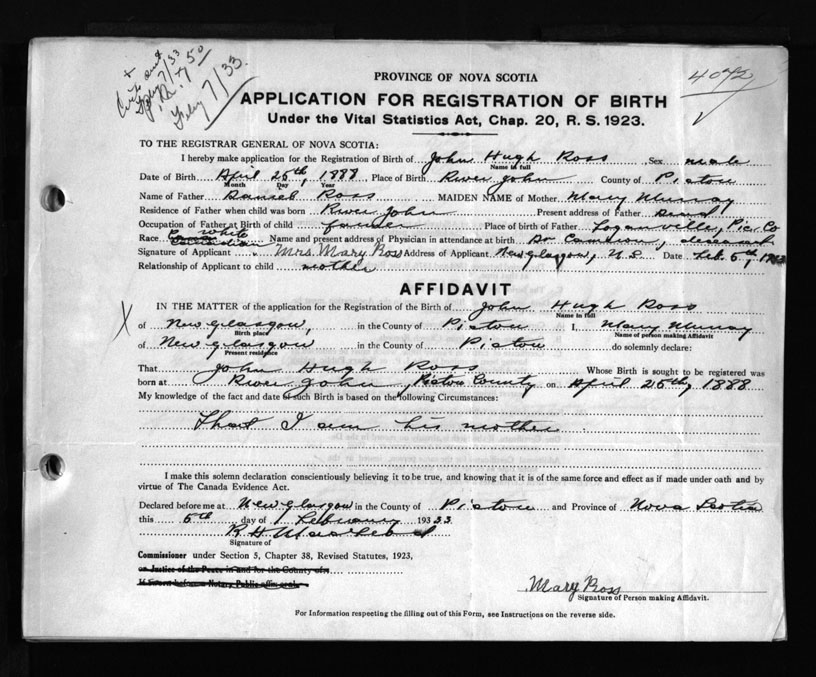 Feby 7/33 50
Feby 7/33.
4072
PROVINCE OF NOVA SCOTIA
APPLICATION FOR REGISTRATION OF BIRTH
Under the Vital Statistics Act, Chap. 20, R. S. 1923.
TO THE REGISTRAR GENERAL OF NOVA SCOTIA:
I hereby make application for the Registration of Birth of John Hugh Ross Sex male
Name in full
Date of Birth April 25th, 1888 Place of Birth River John County of Pictou
Month Day Year
Name of Father Ross MAIDEN NAME of Mother Mary Murray
Residence of Father when child was born River John Present address of Father Dead
Occupation of Father at Birth of child farmer Place of birth of Father Loganville, Pic. Co
Race white Name and present address of Physician in attendance at birth Dr Cameron, deceased
Signature of Applicant Mrs. Mary Ross Address of Applicant New Glasgow, N.S. Date Feb. 5th, 1933
Relationship of Applicant to child mother
AFFIDAVIT
IN THE MATTER of the application for the Registration of the Birth of John Hugh Ross
Name in full
X of New Glasgow, in the County of Pictou I, Mary Murray
Birth place Name of person making Affidavit
of New Glasgow in the County of Pictou do solemnly declare:
Present residence
That John Hugh Ross Whose Birth is sought to be registered was
born at River John, Pictou County on April 25th, 1888
My knowledge of the fact and date of such Birth is based on the following Circumstances:
That I am his mother.
I make this solemn declaration conscientiously believing it to be true, and knowing that it is of the same force and effect as if made under oath and by
virtue of The Canada Evidence Act.
Declared before me at New Glasgow in the County of Pictou and Province of Nova Scotia
this 5th day of February 1933
R H
Signature of
Commissioner under Section 5, Chapter 38, Revised Statutes, 1923,
an Justice of the Peace in and for the County of
Mary Ross
Signature of Person making Affidavit.
For Information respecting the filling out of this Form, see Instructions on the reverse side.